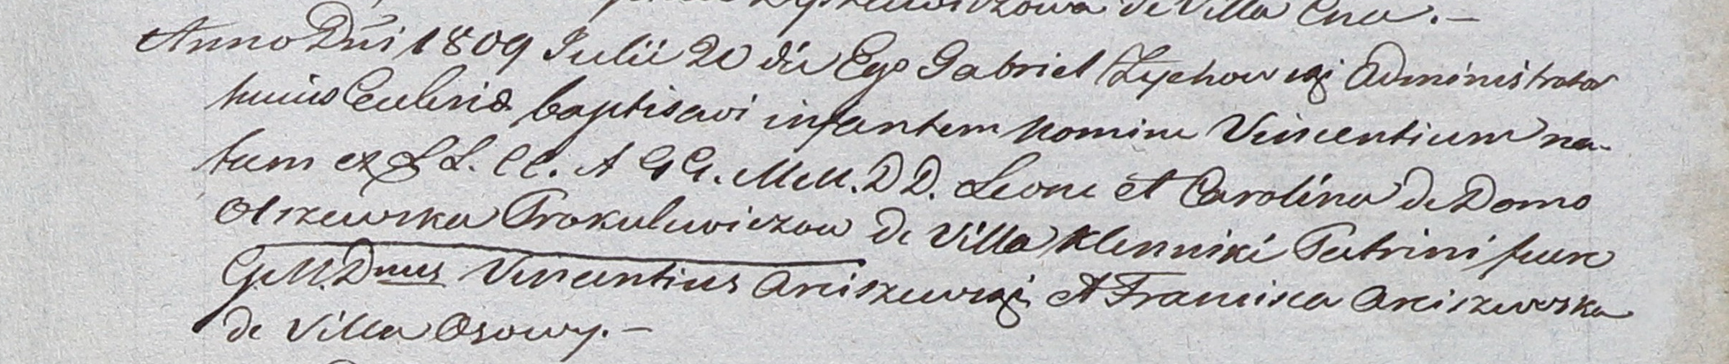 de Villa
Anno Dñi 1809 Julii 20 die Ego Gabriel Zychowski Administrator
huius Ecclesiæ baptisavi infantem nomine Vincentium na-
tum ex LL. CC. A GG. MM. DD. Leone et Carolina de Domo
Olszewska Prokulewiczow de Villa Klenniki Patrini fuere
G. M. Dnus Vincentius Arciszewski et Francisca Arciszewska
de Villa Osowy.—